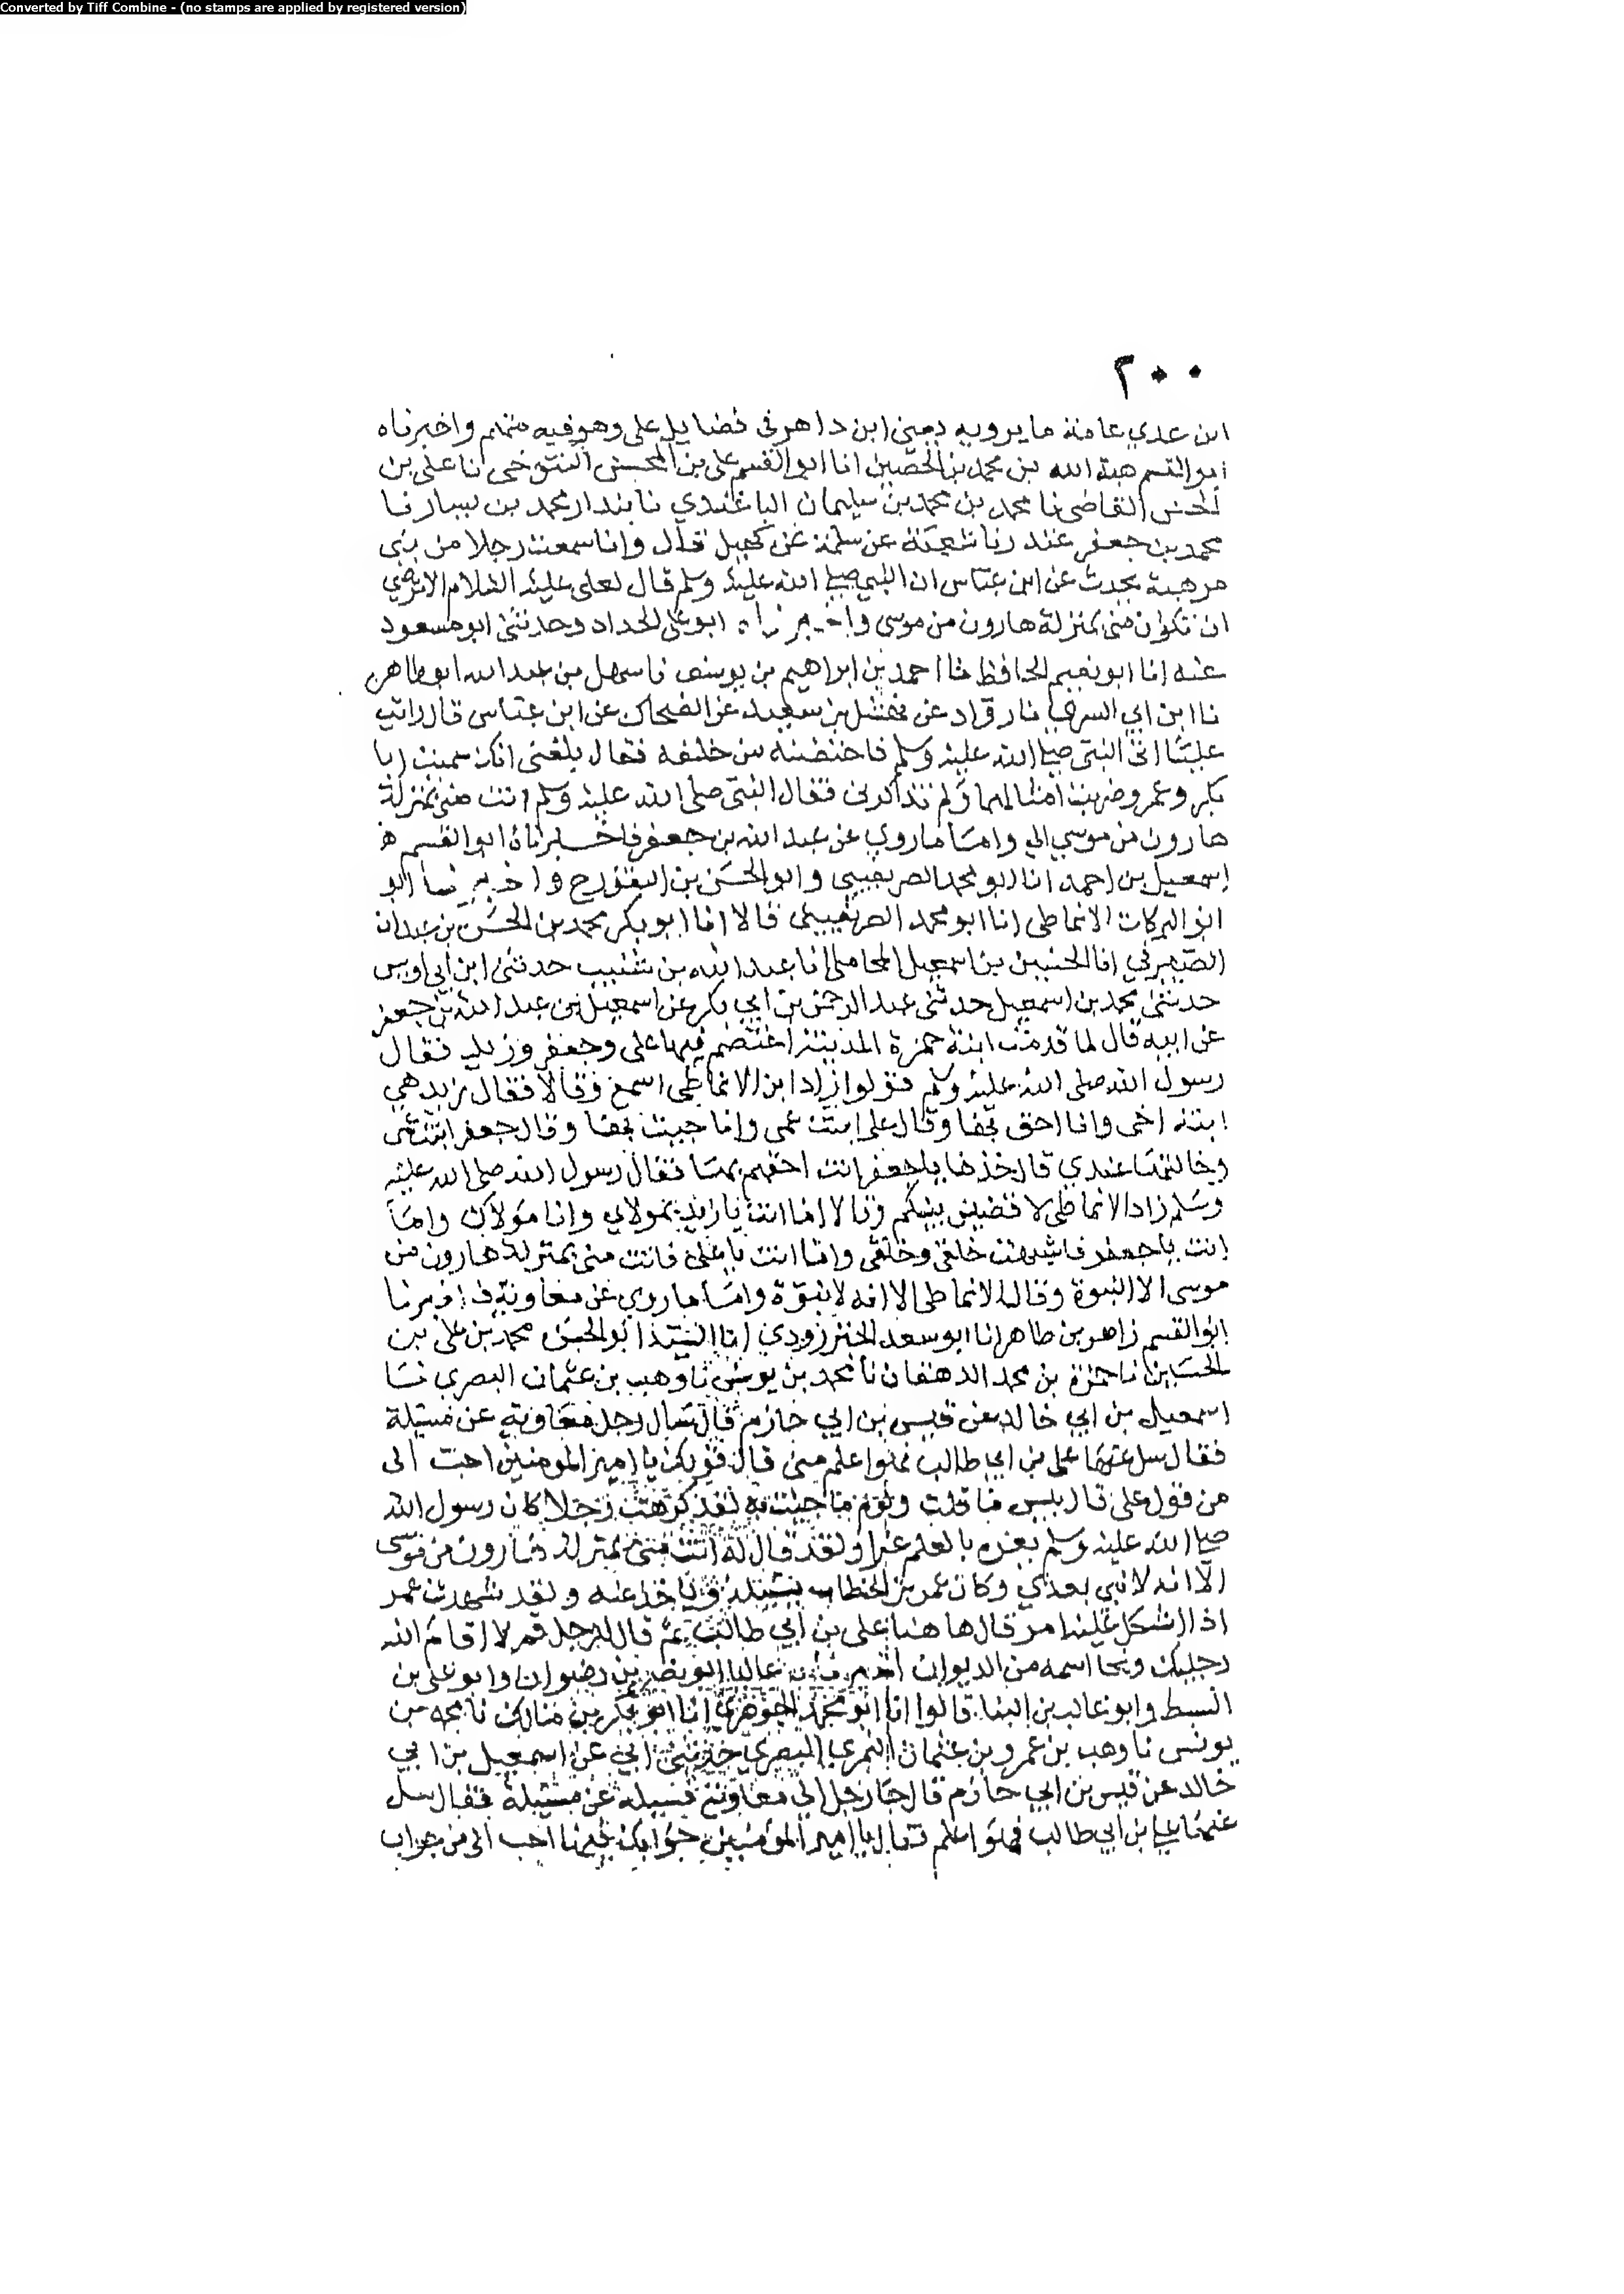 Converted by Tiff Combine - (no stamps are applied by registered version)
٢٠٠
ابن عدي عامة ما يرويه يعني ابن داهر في فضايل علي وهو فيه متهم واخبرناه
ابو القسم هبة الله بن محمد بن الحصين انا ابو القسم علي بن المحسن التنوخي انا علي بن
القاضي نا محمد بن محمد بن سليمان الباغندي نا بندار محمد بن بسار نا
محمد بن جعفر غندر نا شعبة عن سلمة بن كهيل قال وانا سمعت رجلا من بني
مرهبة يحدث عن ابن عباس ان النبي صلى الله عليه وسلم قال لعلي عليه السلام الا ترضي
ان تكون مني بمنزلة هارون من موسى واخبرناه ابو علي الحداد وحدثني ابو مسعود
عنه انا ابو نعيم الحافظ نا احمد بن ابراهيم بن يوسف نا سهل بن عبد الله ابو طاهر
نا ابن ابي السري نا رواد عن نهشل بن سعيد عن الضحاك عن ابن عباس قال رايت
عليا اتى النبي صلى الله عليه وسلم فاحتضنه من خلفه فقال بلغني انك سميت ابا
بكر وعمر وضربت امثالهما ولم تذكرني فقال النبي صلى الله عليه وسلم انت مني بمنزلة
هارون من موسي واما ما روي عن عبد الله بن جعفر فاخبرناه ابو القسم
اسمعيل بن احمد انا ابو محمد الصريفيني وابو الحسن بن النقور ح واخبرنا ابو
ابو البركات الانماطي انا ابو محمد الصريفيني قالا انا ابو بكر محمد بن الحسن بن عبدان
الصيرفي انا الحسين بن اسمعيل المحاملي نا عبد الله بن شبيب حدثني ابن ابي اويس
حدثني محمد بن اسمعيل حدثني عبد الرحمن بن ابي بكر عن اسمعيل بن عبد الله بن جعفر
عن ابيه قال لما قدمت ابنة حمزة المدينة اختصم فيها علي وجعفر وزيد فقال
رسول الله صلى الله عليه وسلم قولوا زاد ابن الانماطي اسمع وقالا فقال زيد هي
ابنة اخي وانا احق بها وقال علي ابنت عمي وانا جيت بها وقال جعفر ابنت عمي
وخالتها عندي قال خذها يا جعفر انت احقهم بها فقال رسول الله صلى الله عليه
وسلم زاد الانماطي لاقضين بينكم وقالا اما انت يا زيد بمولاي وانا مولاك واما
انت يا جعفر فاشبهت خلقي وخلقي واما انت يا علي فانت مني بمنزلة هارون من
موسى الا النبوة وقال الانماطي الا انه لا نبوة واما ما روي عن معاوية فاخبرنا
ابو القسم زاهر بن طاهر انا ابو سعد الجنزرودي انا السيد ابو الحسن محمد بن علي بن
الحسين نا حمزة بن محمد الدهقان نا محمد بن يونس نا وهب بن عثمان البصري نا
اسمعيل بن ابي خالد عن قيس بن ابي حازم قال سال رجل معاوية عن مسيلة
فقال سل عنها علي بن ابي طالب فهو اعلم مني قال قولك يا امير المومنين احب الى
من قول علي قال بيس ما قلت ولؤم ما جيت به لقد كرهت رجلا كان رسول الله
صلى الله عليه وسلم يغره بالعلم غرا ولقد قال له انت مني بمنزلة هارون من موسى
الا انه لا نبي بعدي وكان عمر بن الخطاب يسيله وياخذ عنه ولقد شهدت عمر
اذا اشكل عليه امر قال هاهنا علي بن ابي طالب ثم قال للرجل قم لا اقام الله
رجليك ومحا اسمه من الديوان اخبرناه عاليا ابو نصر بن رضوان وابو علي بن
السبط وابو غالب بن البنا قالوا انا ابو محمد الجوهري انا ابو بكر بن مالك نا محمد بن
يونس نا وهب بن عمرو بن عثمان النمري البصري حدثني ابي عن اسمعيل بن ابي
خالد عن قيس بن ابي حازم قال جا رجل الى معاوية فسيله عن مسئيلة فقال سل
عنها علي بن ابي طالب فهو اعلم فقال يا امير المؤمنين جوابك فيها احب الى من جواب